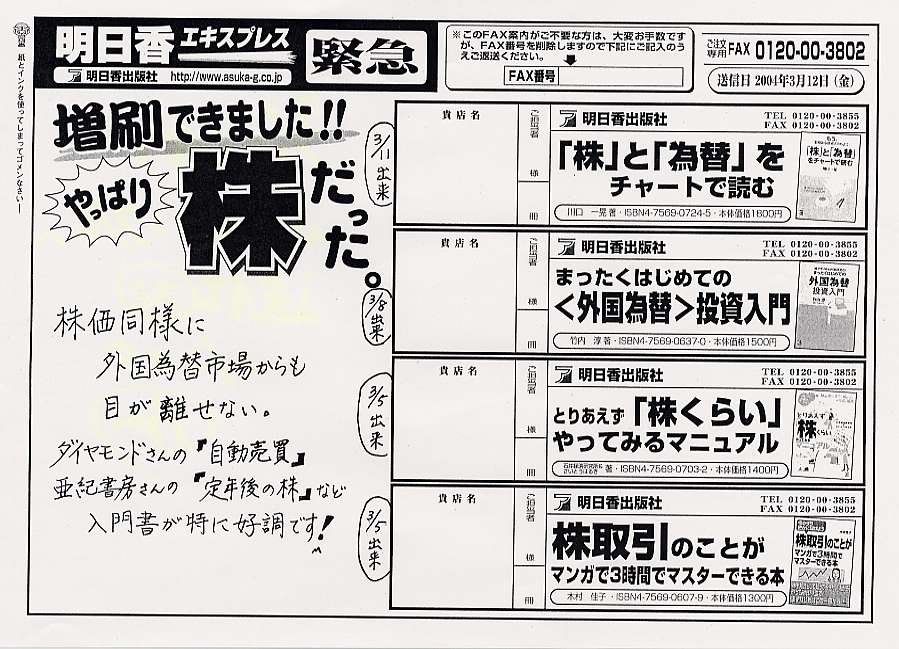 紙とインクを使ってしまってゴメンなさい
明日香エキスプレス
明日香出版社 http://www.asuka-g.co.jp
緊急
※このFAX案内がご不要な方は、大変お手数です
が、FAX番号を削除しますので下記にご記入のう
えご返送ください。
FAX番号
ご注文専用FAX 0120-00-3802
送信日 2004年3月12日(金)
増刷できました!!
やっぱり
株だった。
株価同様に
外国為替市場からも
目が離せない。
ダイヤモンドさんの『自動売買』
亜紀書房さんの『定年後の株』など
入門書が特に好調です!
3/11出来
貴店名
ご担当者
様
冊
明日香出版社
TEL 0120-00-3855
FAX 0120-00-3802
「株」と「為替」を
チャートで読む
川口 一晃 著・ISBN4-7569-0724-5・本体価格1600円
「株」と「為替」
をチャートで読む
3/8出来
貴店名
ご担当者
様
冊
明日香出版社
TEL 0120-00-3855
FAX 0120-00-3802
まったくはじめての
<外国為替>投資入門
竹内 淳 著・ISBN4-7569-0637-0・本体価格1500円
まったくはじめての
外国為替
投資入門
3/5出来
貴店名
ご担当者
様
冊
明日香出版社
TEL 0120-00-3855
FAX 0120-00-3802
とりあえず「株くらい」
やってみるマニュアル
著・ISBN4-7569-0703-2・本体価格1400円
とりあえず
株くらい
3/5出来
貴店名
ご担当者
様
冊
明日香出版社
TEL 0120-00-3855
FAX 0120-00-3802
株取引のことが
マンガで3時間でマスターできる本
木村 佳子・ISBN4-7569-0607-9・本体価格1300円
株取引のことが
マンガで3時間で
マスターできる本